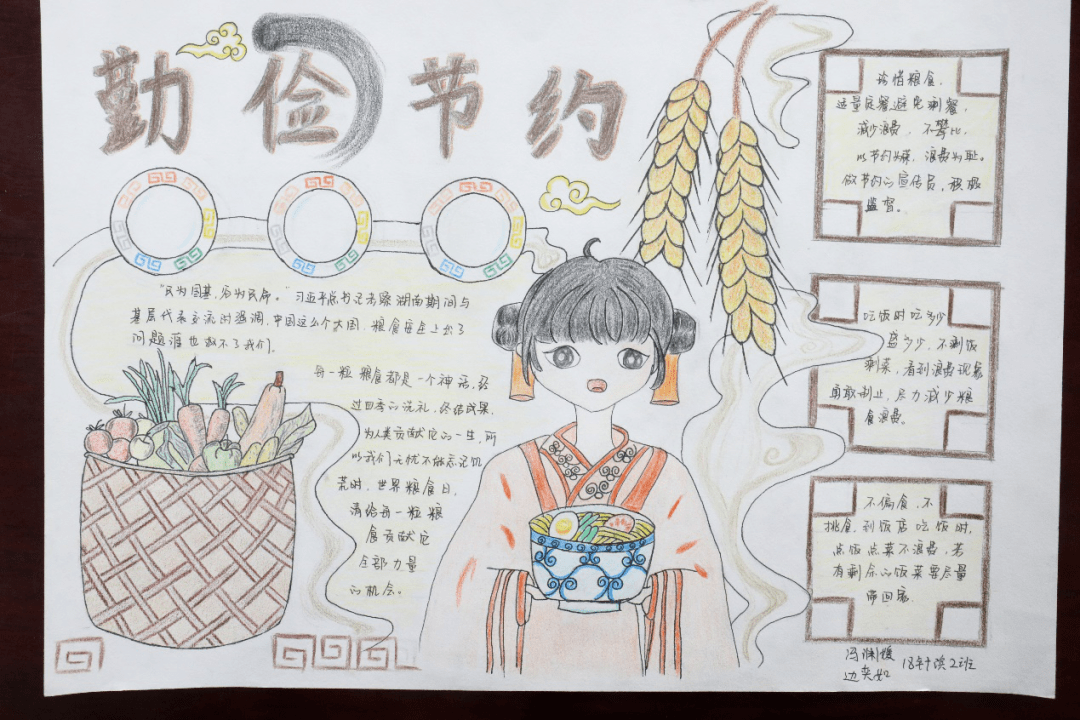 勤俭节约
"民为国基,谷为民命。"习近平总书记考察湖南期间与
基层代表交流时强调,中国这么个大国,粮食安全上出了
问题谁也救不了我们。
每一粒粮食都是一个神话,经
过四季的洗礼,终结成果,
为人类贡献它的一生,所
以我们无忧不能忘记饥
荒时,世界粮食日,
请给每一粒粮
食贡献它
全部力量
的机会。
珍惜粮食,
适量定餐避免剩餐,
减少浪费,不攀比,
以节约为荣,浪费为耻。
做节约的宣传员,积极
监督。
吃饭时吃多少
盛多少,不剩饭
剩菜,看到浪费现象
勇敢制止,尽力减少粮
食浪费。
不偏食,不
挑食,到饭店吃饭时,
点饭点菜不浪费,若
有剩余的饭菜要尽量
带回家。
冯
边奕如
2班